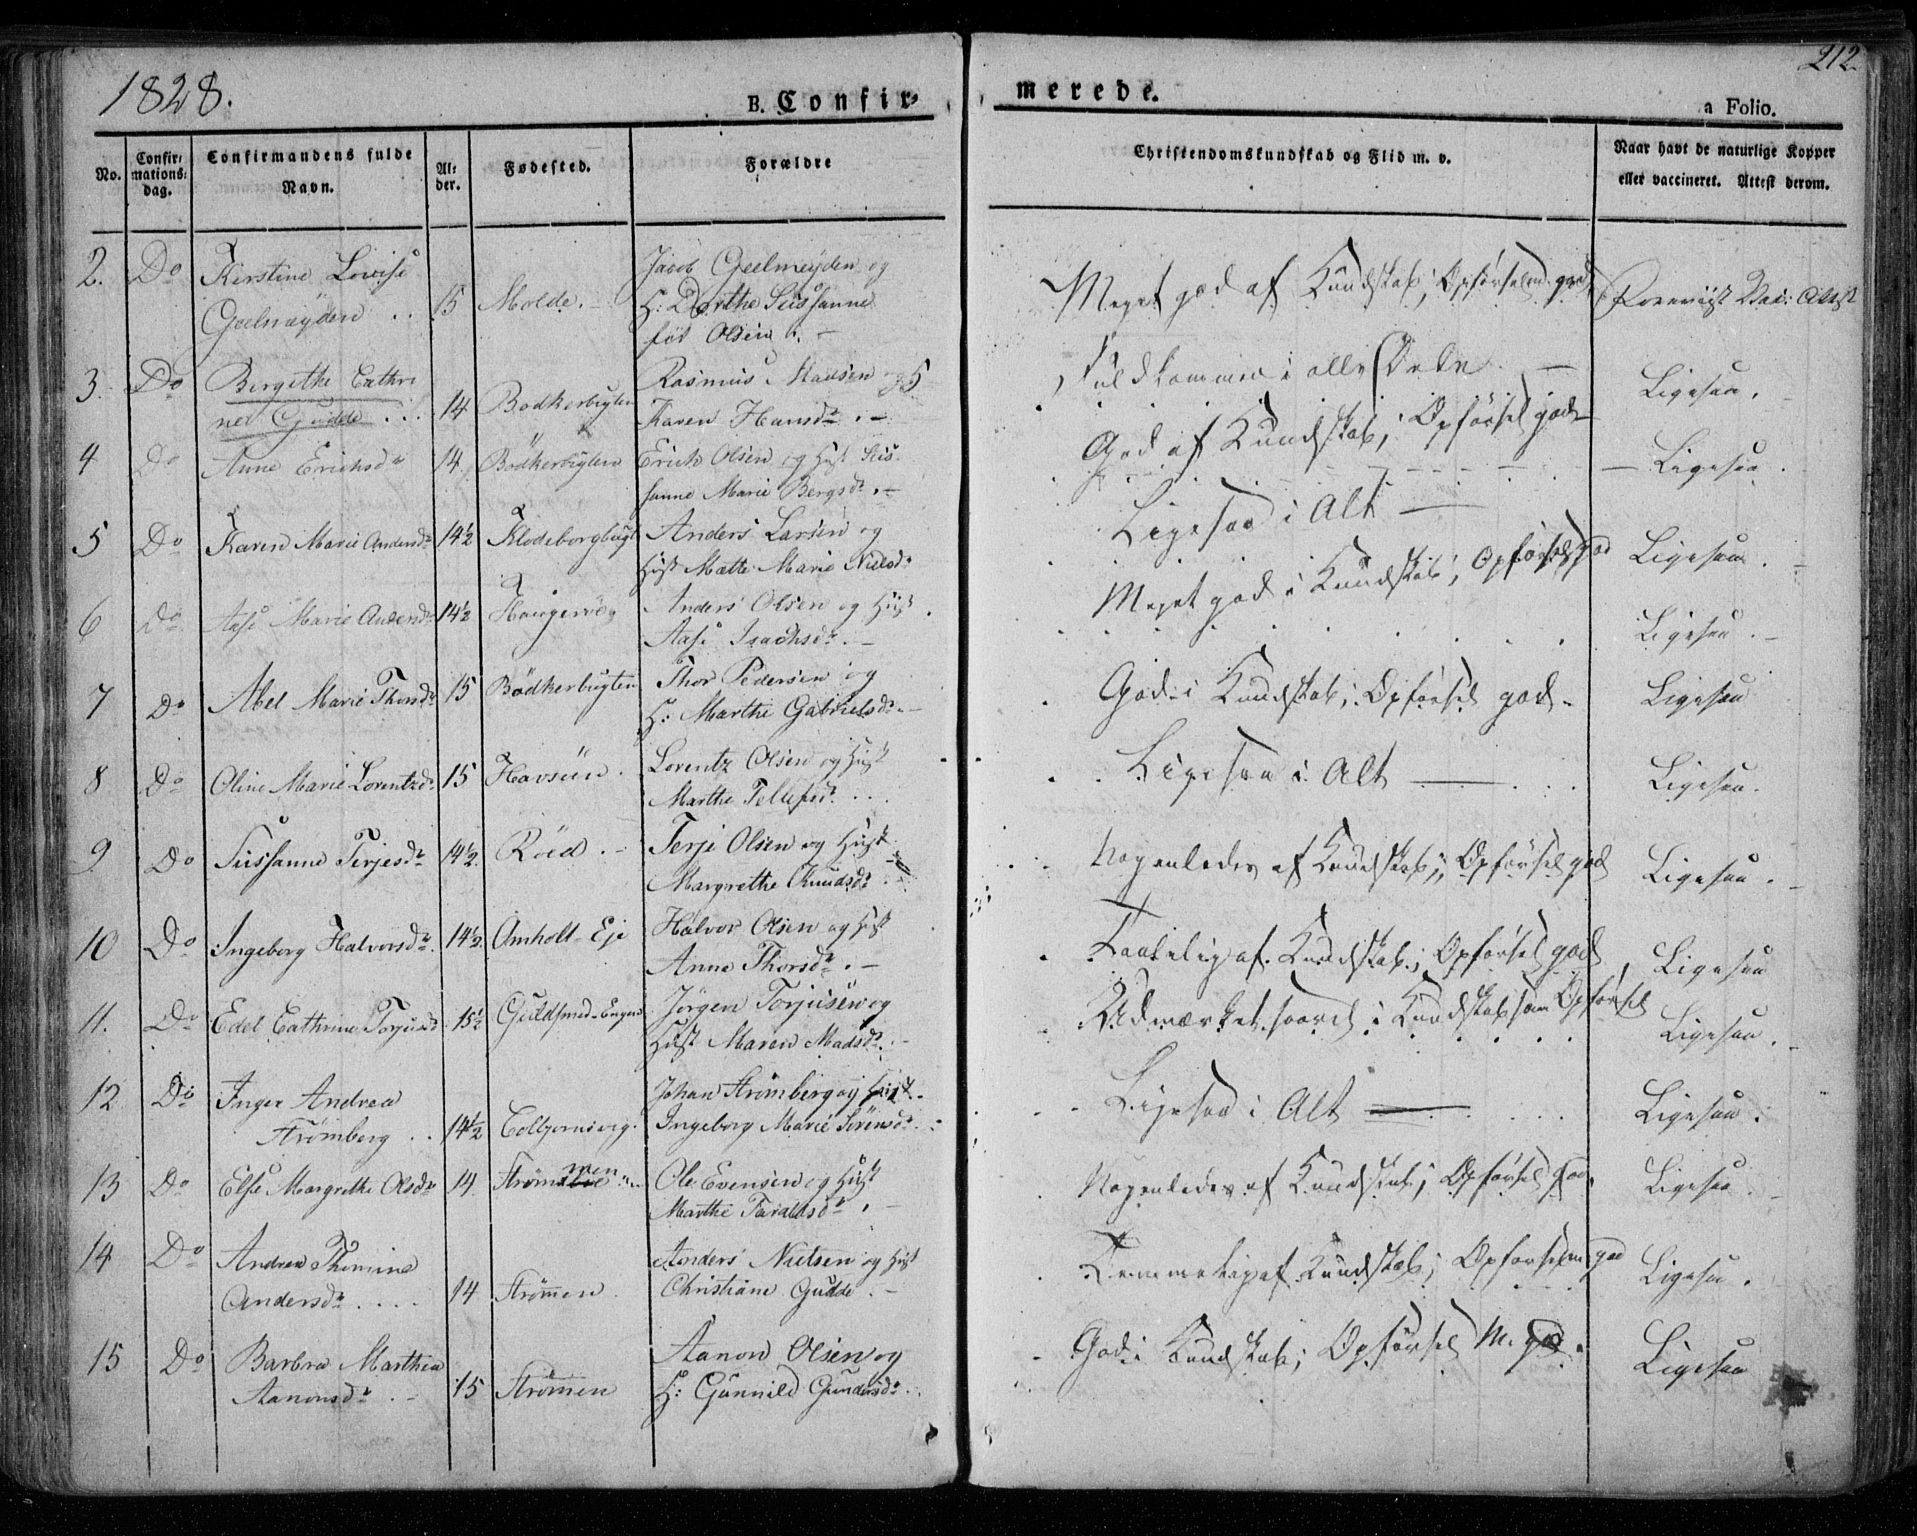 1828.
B. Confir=
merede.
212.
a Folio.
No.
Confir=
mations=
dag.
Confirmandens fulde
Navn.
Al=
der.
Fødested.
Forældre
Christendomskundskab og Flid m. v.
Naar havt de naturlige Kopper
eller vaccineret. Attest derom.
2. Do Kirstine Lovise
Geelmeÿden . . 15 Molde.
Jacob Geelmeÿden og
H: Dorthe Sussanne
föd Olsen .
Meget god af Kundskab; Opførselen god
Vac: Attest
3. Do Birgithe Cathri
ne Gudde . . . 14 Bodkerbugten
Rasmus Madsen og
Karen Hansdr.
Fuldkommen i alle Dele.
Ligesaa.
4 Do Anne Erichsdr 14 Bödkerbugten
Erich Olsen og Hust Sus
sanne Marie Bergsdr.
God af Kundskab; Opførsel god
Ligesaa.
5 Do Karen Marie Andersdr 14½ Klodeborgbugt
Anders Larsen og
Hust Mætte Marie Nielsdr
Ligesaa i Alt
Ligesaa.
6 Do Aase Marie Andersdr 14½
Anders Olsen og Hust
Aase Isachsdr.
Meget god i Kundskab; Opførsel god
Ligesaa.
7 Do Abel Marie Thorsdr 15 Bödkerbugten
Thor Pedersen og
H: Marthe Gabrielsdr.
God i Kundskab; Opførsel god.
Ligesaa
8 Do Oline Marie Lorentzdr 15 Havsöen.
Lorentz Olsen og Hust
Marthe Tellefsdr. . .
Ligesaa i Alt
Ligesaa.
9 Do Sussanne Terjesdr 14½ Röed.
Terje Olsen og Hust
Margrethe Knudsdr.
Nogenledes af Kundskab; Opførsel god
Ligesaa.
10 Do Ingeborg Halvorsdr. 14½ Amholt-Eje
Halvor Olsen og Hust
Anne Thorsdr.
Taalelig af Kundskab; Opførsel god
Ligesaa
11. Do Edel Cathrine Torjusdr 15½ Guldsmed-Engen
Jörgen Torjusen og
Hust Maren Madsdr.
Udmærket saavel i Kundskab som Opførsel
Ligesaa.
12 Do Inger Andrea
Strömberg . . 14½ Colbjørnsvig.
Johan Strömberg og Hust
Ingeborg Marie Sörensdr.
Ligesaa i Alt
Ligesaa.
13 Do Else Margrethe Olsdr 14 Strömmen
Ole Evensen og Hust
Marthe Taraldsdr.
Nogenledes af Kundskab; Opførsel god.
Ligesaa.
14 Do Andrea Thomine
Andersdr. . . . 14 Strömmen.
Anders Nielsen og Hust
Christiane Gudde.
Temmelig af Kundskab; Opførselen god
Ligesaa.
15 Do Barbra Marthea
Aanonsdr. 15 Strömmen
Aanon Olsen og
H: Gunnild Gundersdr.
God i Kundskab; Opførsel M. god.
Ligesaa